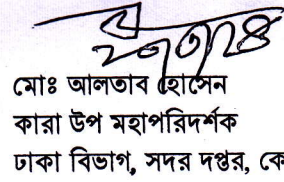 মোঃ আলতাব হোসেন
কারা উপ মহাপরিদর্শক
ঢাকা বিভাগ, সদর দপ্তর, কে